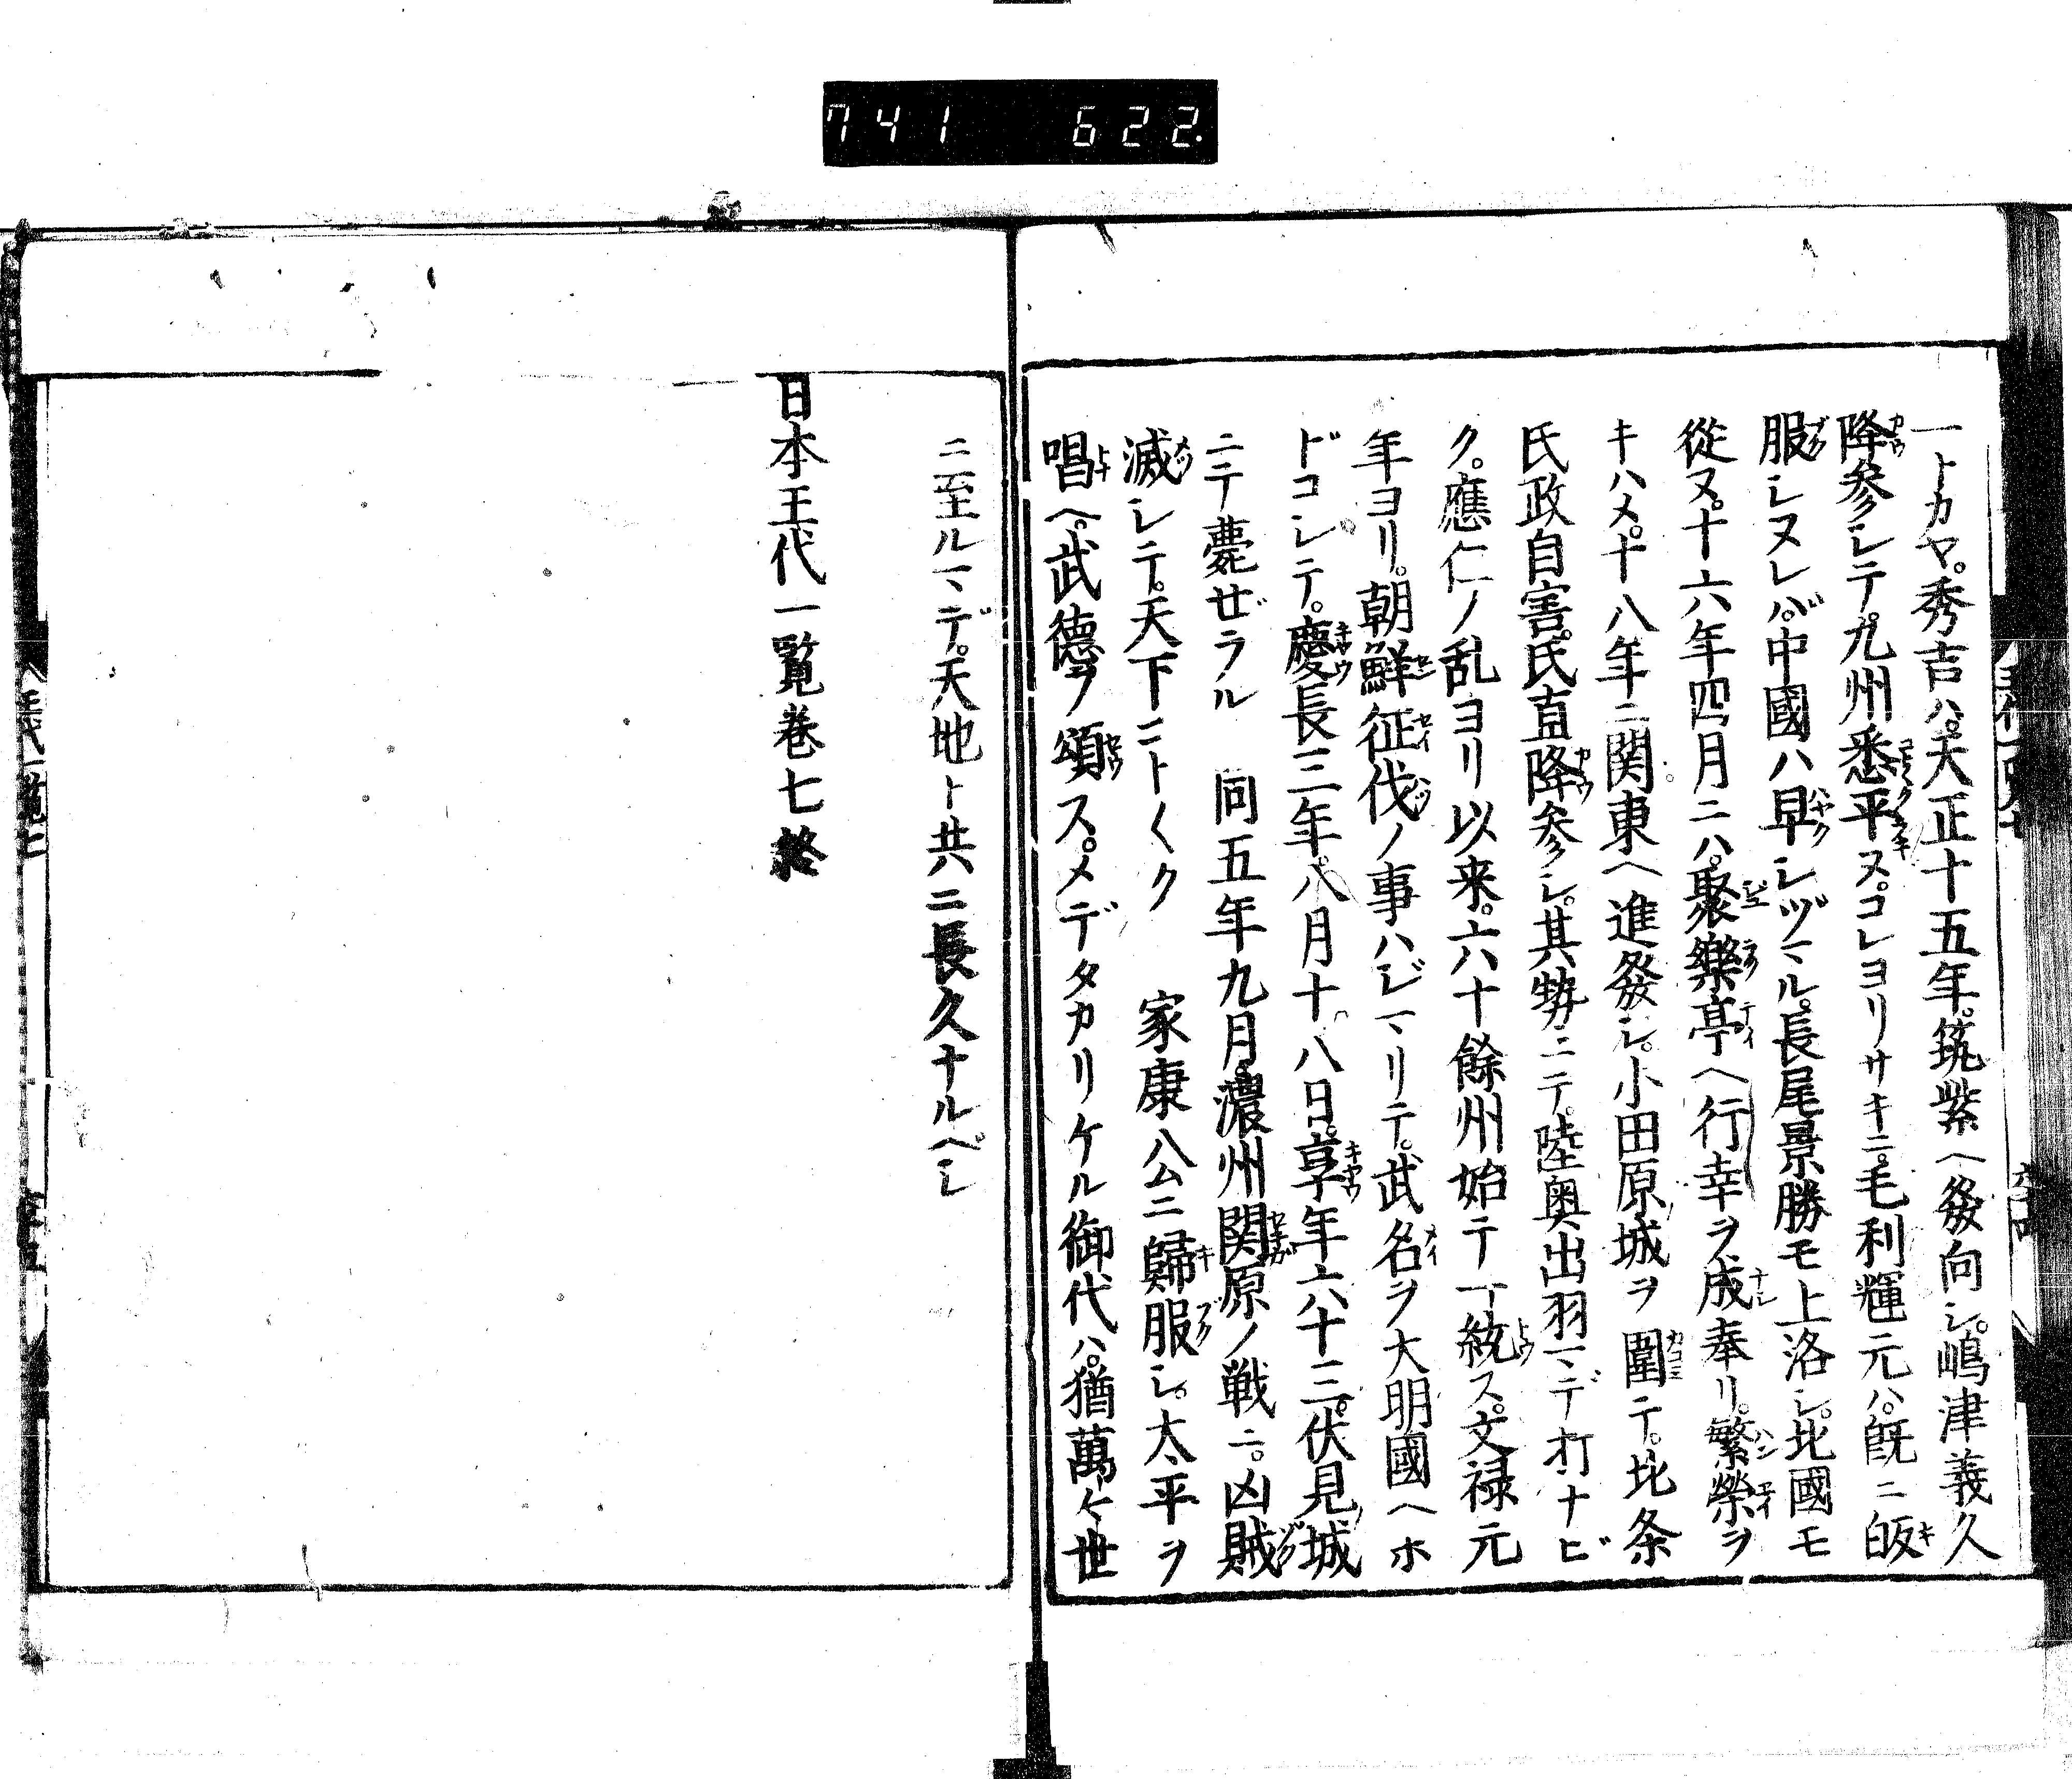 741 622.
一トカヤ。秀吉ハ。天正十五年。筑紫ヘ發向シ。嶋津義久
降参シテ。九州悉平ヌ。コレヨリサキニ。毛利輝元ハ。既ニ皈
服シヌレバ。中國ハ早シヅマル。長尾景勝モ上洛シ。北國モ
從ヌ。十六年四月ニハ。聚樂亭ヘ行幸ヲ成奉リ。繁榮ヲ
キハメ。十八年ニ関東ヘ進發シ。小田原城ヲ圍テ。北条
氏政自害。氏直降参シ。其勢ニテ。陸奥出羽マデ打ナビ
ク。應仁ノ乱ヨリ以来。六十餘州始テ一統ス。文禄元
年ヨリ。朝鮮征伐ノ事ハジマリテ。武名ヲ大明國ヘホ
ドコシテ。慶長三年。八月十八日。享年六十三。伏見城
ニテ薨ゼラル 同五年九月。濃州関原ノ戦ニ。凶賊
滅シテ。天下コトくク 家康公ニ歸服シ。太平ヲ
唱ヘ。武德ヲ頌ス。メデタカリケル御代ハ。猶萬々世
ニ至ルマデ。天地ト共ニ長久ナルベシ
日本王代一覧巻七終
王代一覧七